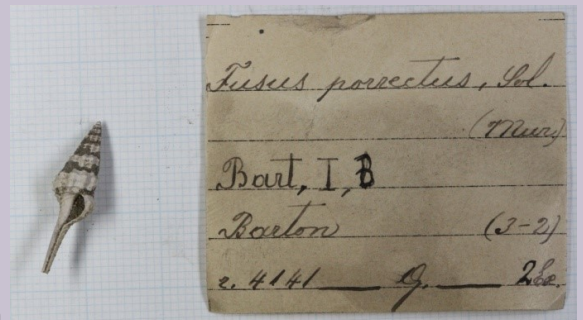 Fusus porrectus, Sol.
(Mur)
Bart, I, B
Barton (3-2)
r. 4141 G. 2